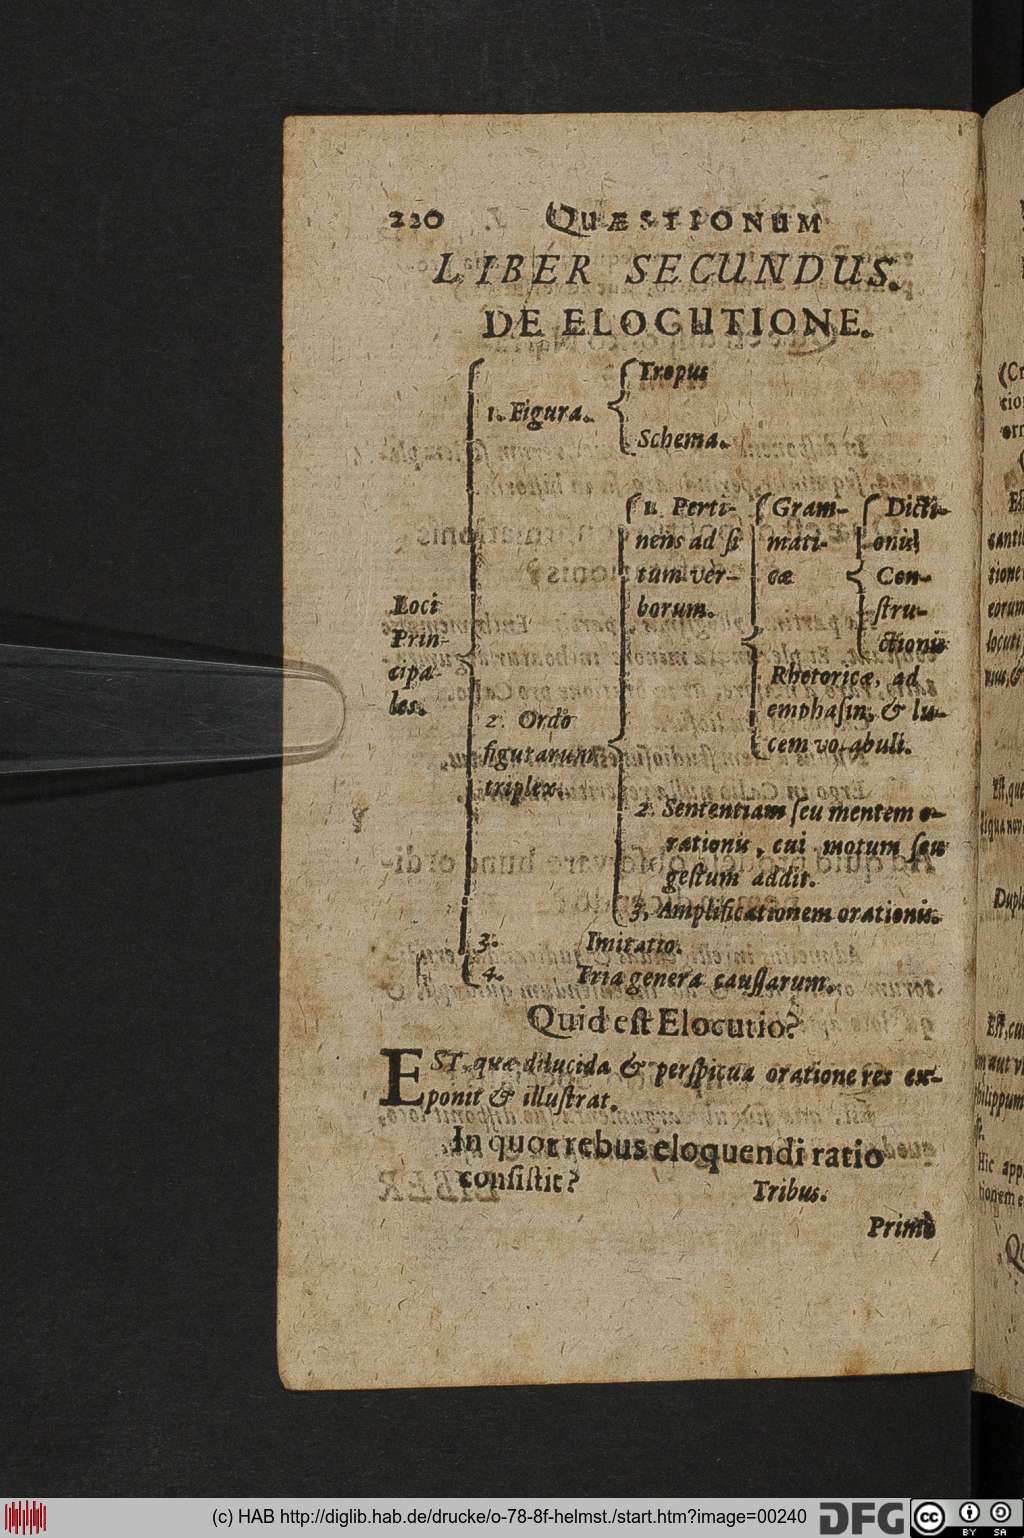 220 QUÆSTIONUM
LIBER SECUNDUS.
DE ELOCUTIONE.
Loci
Prin-
cipa-
les.
1. Figura.
Tropus
Schema.
2. Ordo
figurarum
triplex.
1. Perti-
nens ad ſi
tum ver-
borum.
Gram-
mati-
cæ
Dicti-
onis
Con-
ſtru-
ctionis
Rhetoricæ, ad
emphaſin, & lu-
cem vocabuli.
2. Sententiam ſeu mentem o-
rationis, cui motum ſeu
geſtum addit.
3. Amplificationem orationis.
3. Imitatio.
4. Tria genera cauſſarum.
Quid eſt Elocutio?
EST, quæ dilucida & perſpicua oratione res ex-
ponit & illuſtrat.
In quot rebus eloquendi ratio
conſiſtit?
Tribus.
Primò
(c) HAB http://diglib.hab.de/drucke/o-78-8f-helmst./start.htm?image=00240
DFG
cc
BY SA